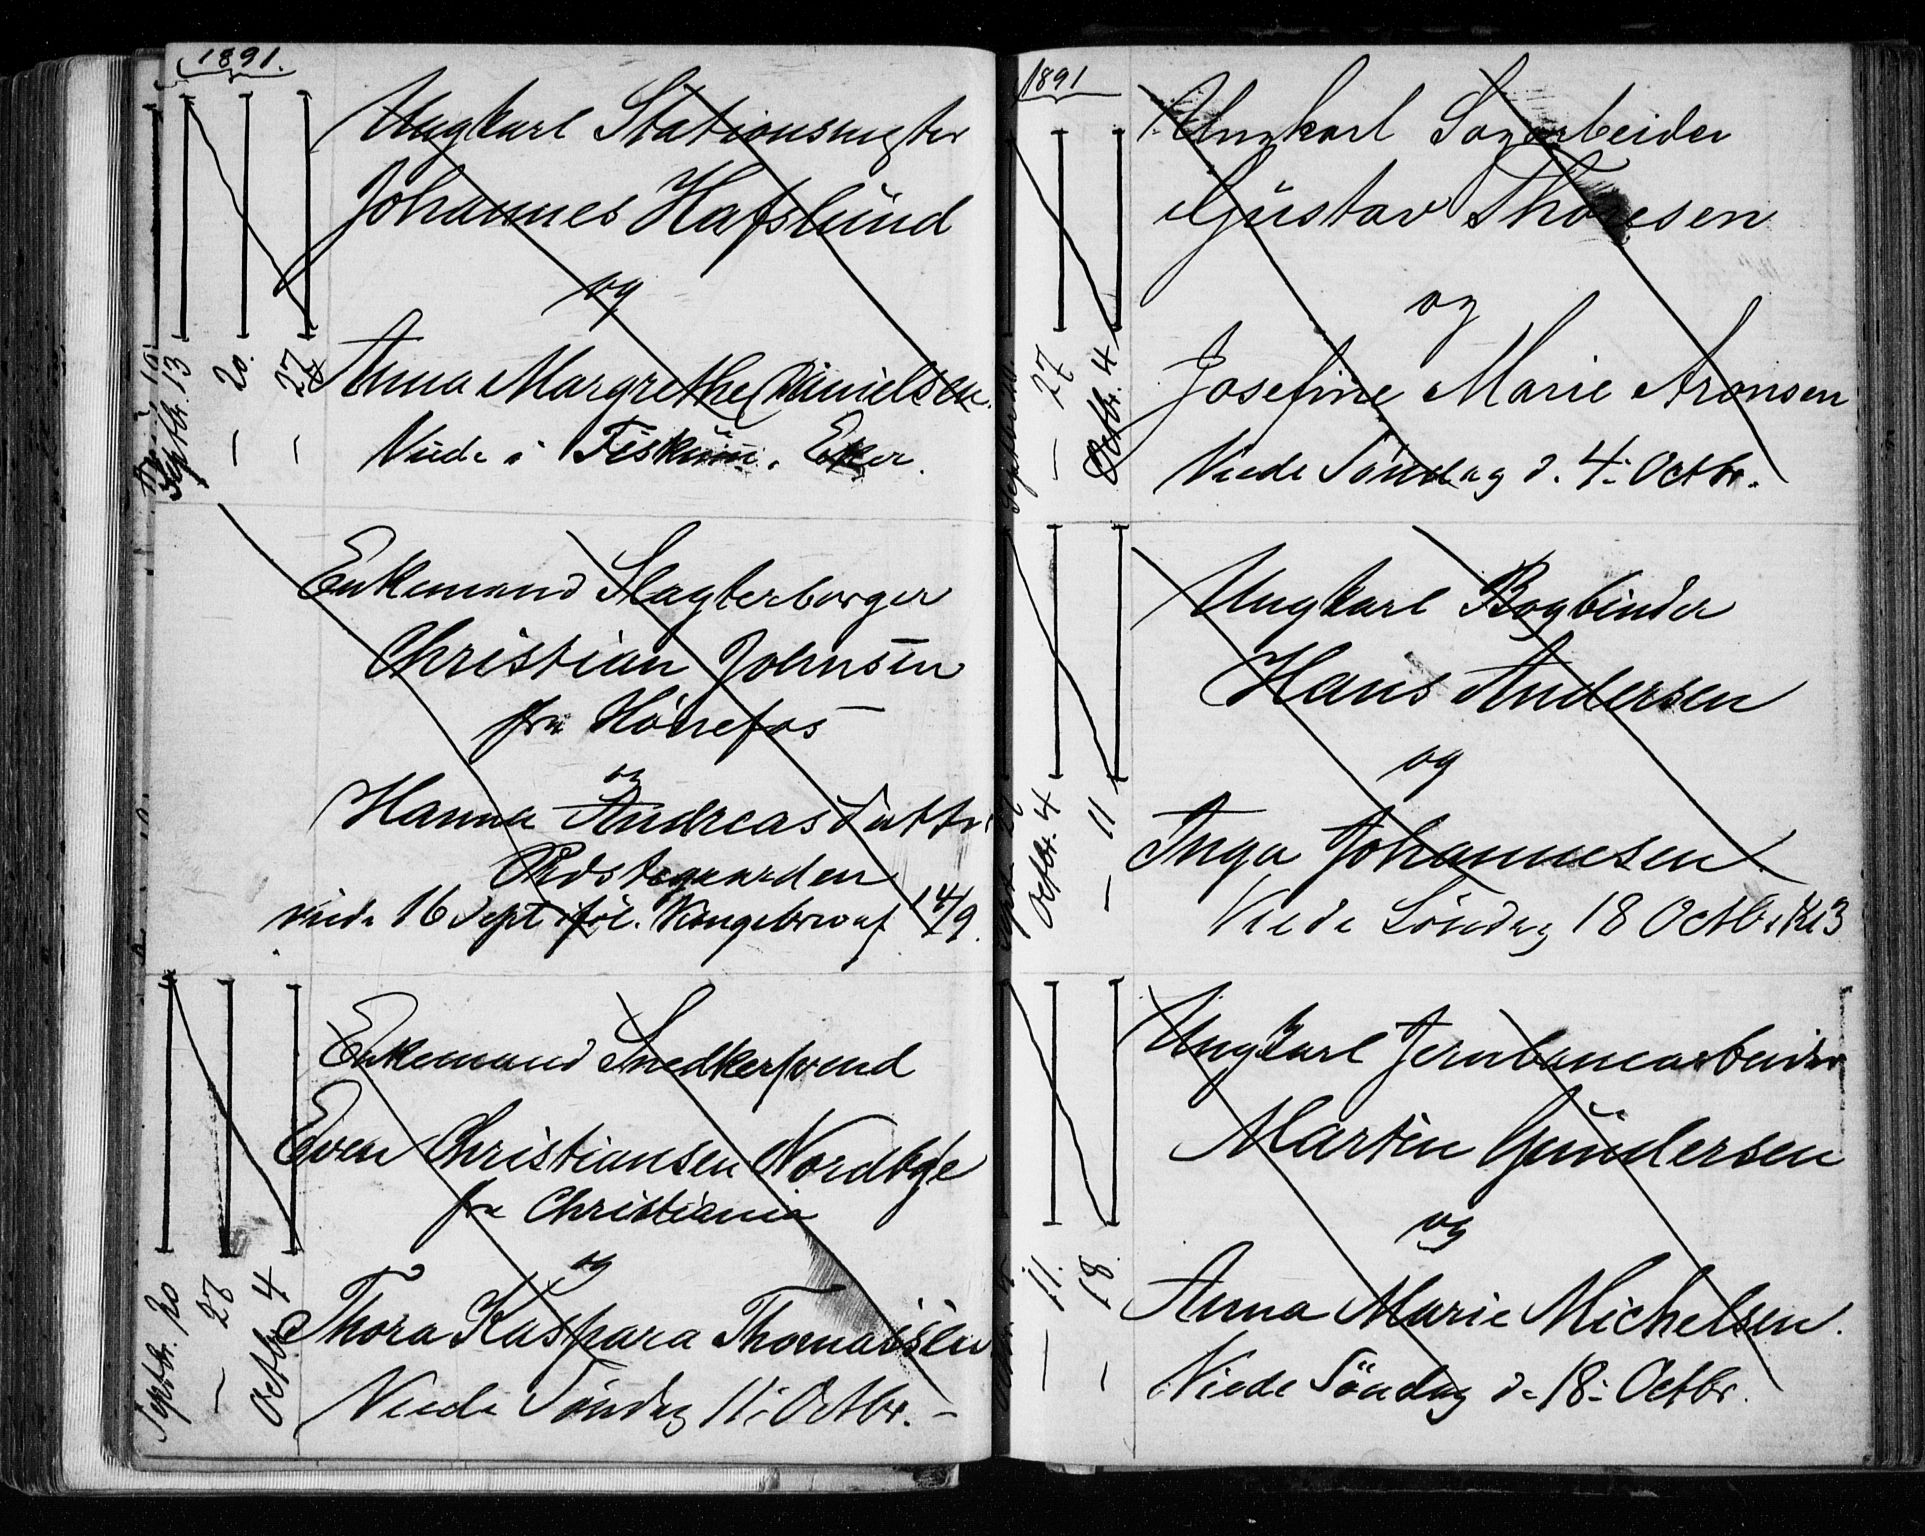 1891.
Ungkarl Stationsmester
Johannes Hafslund
og
Anna Margrethe Danielsen.
Viede i Fiskum, Eker.
Septbr. 13
— 20.
— 27
Enkemand Slagterborger
Christian Johnsen
fra Hønefos
og
Hanna Andreasdatter
viede 16 Sept. iføl. Kongebrev af 14/9.
Enkemand Snedkersvend
Even Christiansen Nordbye
fra Christiania
og
Thora Kaspara Thomassen
Viede Søndag 11: Octbr. —
Septbr. 20
— 27
Octbr. 4
1891
Ungkarl Sagarbeider
Gustav Thoresen
og
Josefine Marie Aronsen
Viede Søndag d. 4: Octbr.
— 27
Octbr. 4
Ungkarl Bogbinder
Hans Andersen
og
Inga Johannesen.
Viede Søndag 18 Octbr. Kl 3
Octbr. 4
— 11
Ungkarl Jernbanearbeider
Martin Gundersen
og
Anna Marie Michelsen.
Viede Søndag d. 18: Octbr.
— 11.
— 18.